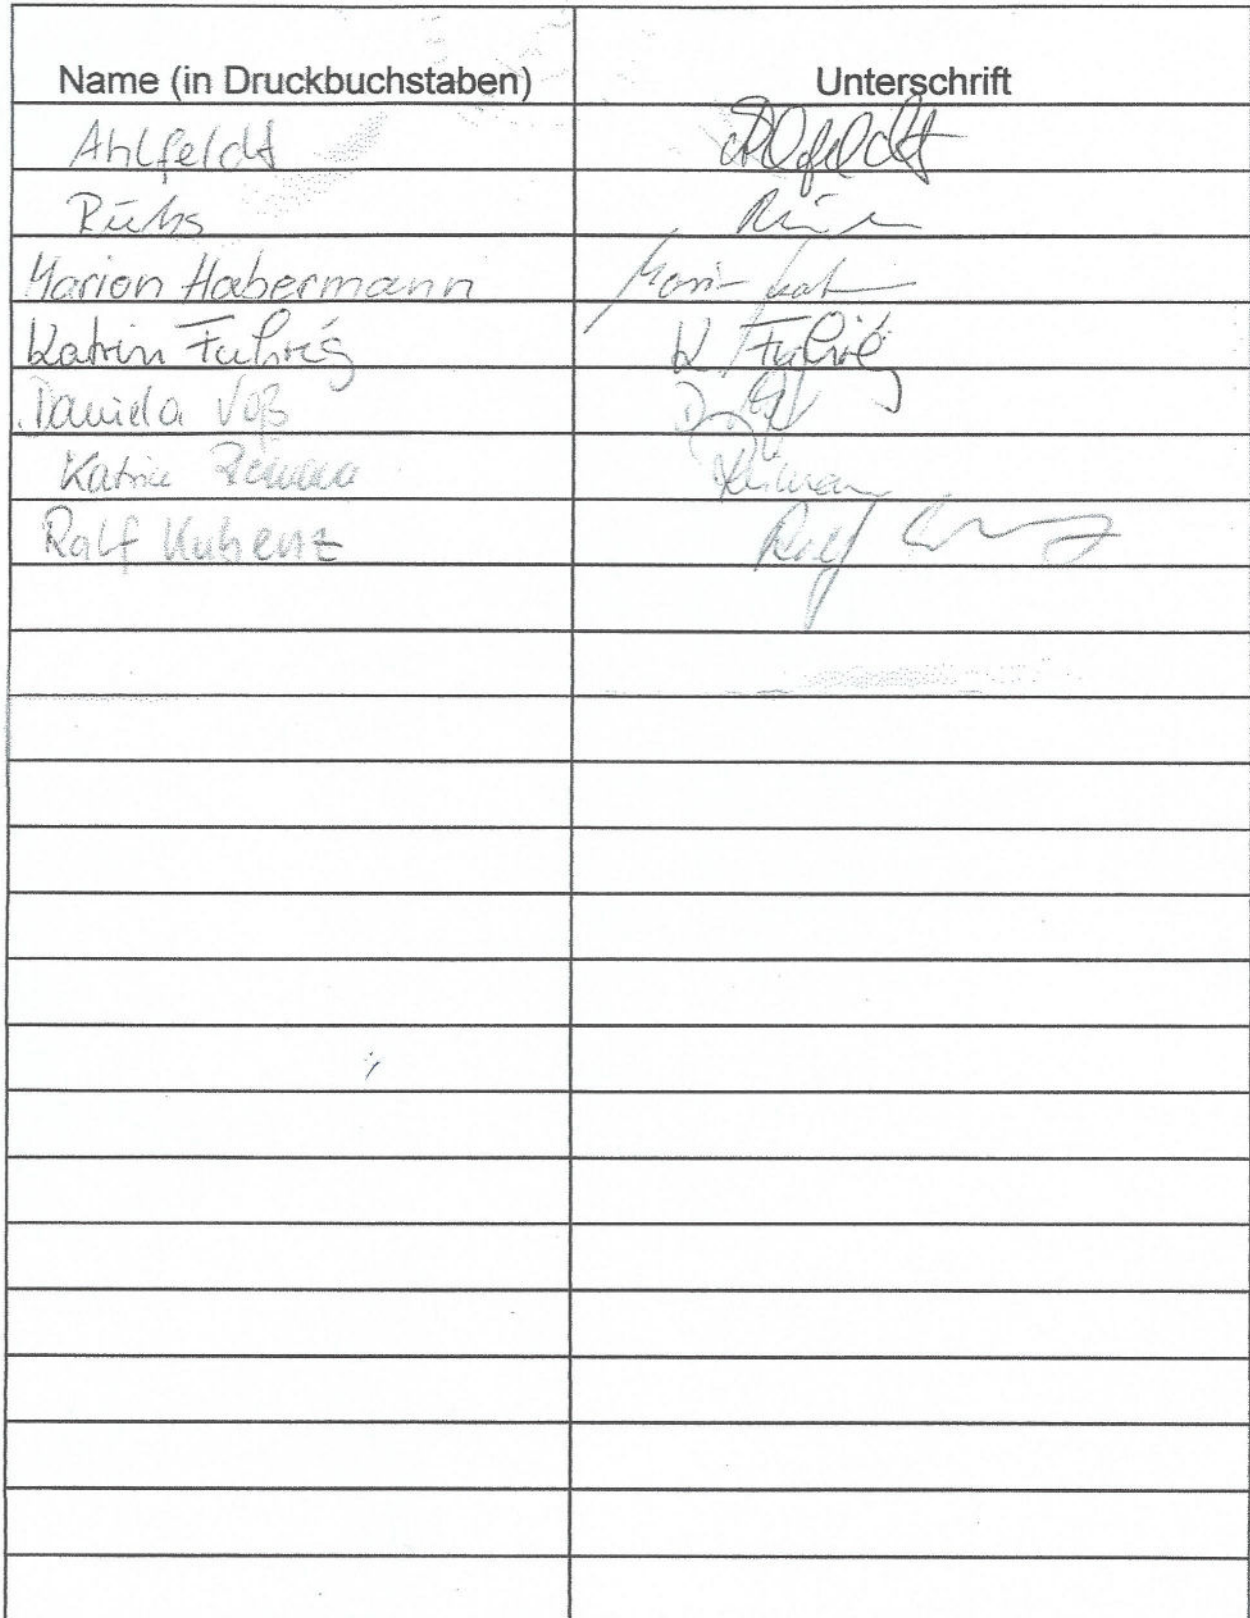 Name (in Druckbuchstaben) Unterschrift
Ahlfeldt Ahlfeldt
Rühs
Marion Habermann
Katrin Führig K. Führig
Daniela Voß
Katrin
Ralf Kubenz Ralf